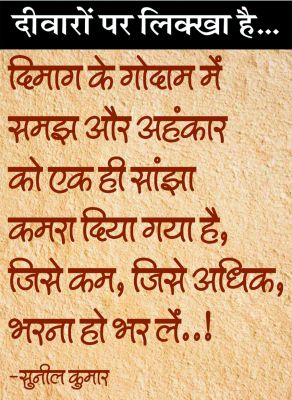 दीवारों पर लिक्खा है...
दिमाग के गोदाम में
समझ और अहंकार
को एक ही सांझा
कमरा दिया गया है,
जिसे कम, जिसे अधिक,
भरना हो भर लें..!
-सुनील कुमार